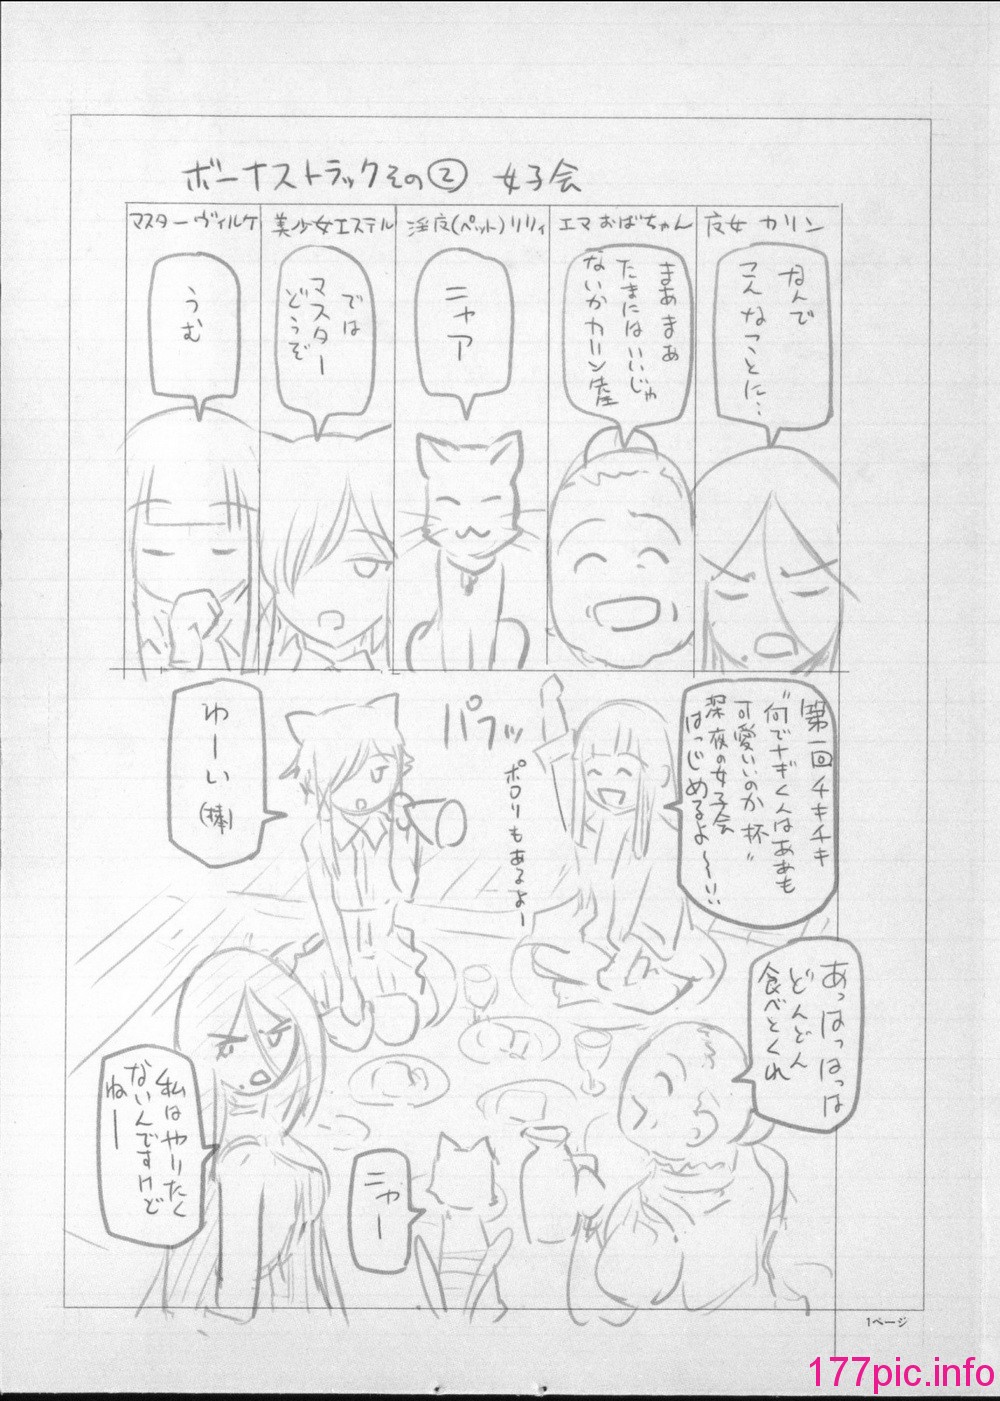 ボーナストラックその② 女子会
夜女 カリン
エマ おばちゃん
淫夜(ペット)リリィ
美少女エステル
マスターヴィルケ
なんで
こんなことに…
まあまあ
たまにはいいじゃ
ないかカリン
ニャア
では
マスター
どうぞ
うむ
第一回チキチキ
"何でナギくんはああも
可愛いのか杯"
深夜の女子会
はっじめるよ〜!!
パフッ
ポロリもあるよー
わーい
(棒)
あっはっはっは
どんどん
食べとくれ
私はやりたく
ないんですけど
ねー
ニャー
1ページ
177pic.info